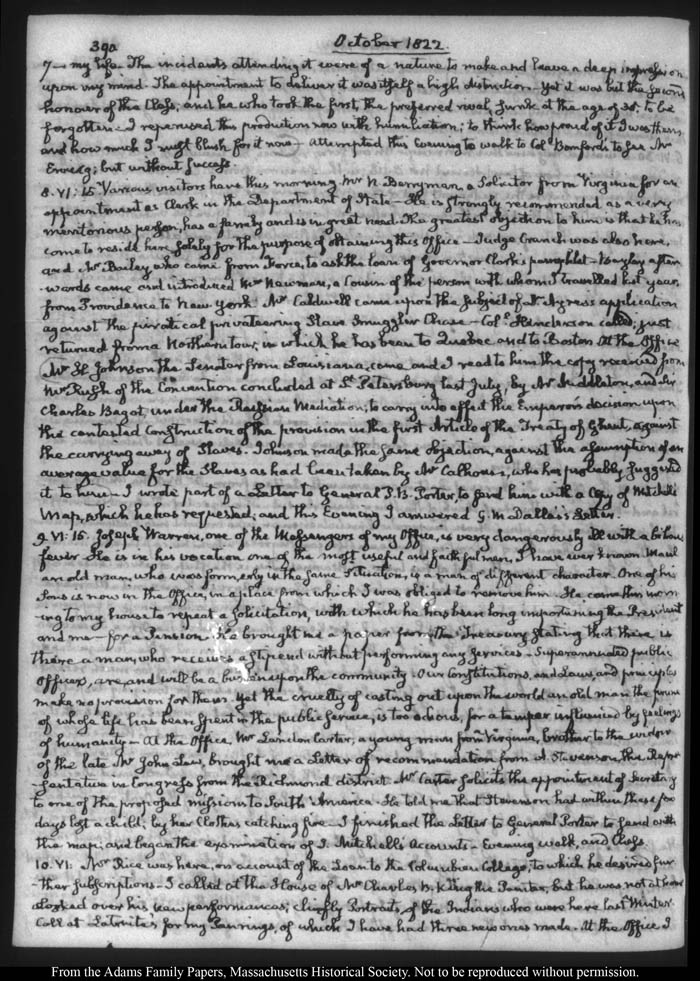 390 October 1822.
7— my life. The incidents attending it were of a nature to make and leave a deep impression
upon my mind. The appointment to deliver it was itself a high distinction. Yet it was but the second
honour of the Class; and he who took the first, the preferred rival, sunk at the age of 35. to be
forgotten— I reperused this production now with humiliation; to think how proud of it I was then;
and how much I must blush for it now— Attempted this Evening to walk to Coll. Bomford's to see Mr
Ennalls; but without success.
8. VI: 15. Various visitors have this morning Mr N. Berryman, a Solicitor from Virginia for an
appointment as Clerk in the Department of State— He is strongly recommended as a very
meritorious person, has a family and is in great need. The greatest objection to him is that he has
come to reside here solely for the purpose of obtaining this Office— Judge Cranch was also here,
and Mr Bailey who came from Force, to ask the loan of Governor Clark's pamphlet— Bayley after
-wards came and introduced Mr Newman, a Cousin of the person with whom I travelled last year,
from Providence to New York. Mr Caldwell came upon the subject of application
against the piratical privateering Slave Smuggler Chase— Coll. Henderson called; just
returned from a Northern tour, in which he has been to Quebec and to Boston. At the Office
Mr H. Johnson the Senator from Louisiana, came and I read to him the copy received from
Mr Rush of the Convention concluded at St. Petersburg last July, by Mr Middleton, and Sir
Charles Bagot, under the Russian Mediation, to carry into effect the Emperor's decision upon
the contested Construction of the provision in the first Article of the Treaty of Ghent, against
the carrying away of Slaves. Johnson made the same objection, against the assumption of an
average value for the Slaves as had been taken by Mr Calhoun, who has probably suggested
it to him— I wrote part of a Letter to General P. B. Porter, to send him with a Copy of Mitchell's
Map, which he has requested; and this Evening I answered G. M. Dallas's Letter.
9. VI: 15. Joseph Warren, one of the Messengers of my Office, is very dangerously ill with a bilious
fever. He is in his vocation one of the most useful and faithful men, I have ever known. Maul
an old man, who was formerly in the same situation, is a man of different character. One of his
Sons is now in the Office, in a place from which I was obliged to remove him. He came this morn
-ing to my house to repeat a solicitation, with which he has been long importuning the President
and me— for a Pension. He brought me a paper from the Treasury stating that there is
there a man, who receives a stipend without performing any services— Superannuated public
Officers, are, and will be a burden upon the community. Our Constitutions, and Laws, and principles
make no provision for them. Yet the cruelty of casting out upon the world an old man the prime
of whose life has been spent in the public service, is too odious, for a temper influenced by feelings
of humanity— At the Office, Mr Landon Carter, a young man from Virginia, brother to the widow
of the late Mr John Law, brought me a Letter of recommendation from A. Stevenson, the Repre
-sentative in Congress from the Richmond district. Mr Carter solicits the appointment of Secretary
to one of the proposed missions to South America. He told me that Stevenson had within these few
days lost a child; by her Clothes catching fire— I finished the Letter to General Porter to send with
the map; and began the examination of J. Mitchell's Accounts— Evening walk, and Chess.
10. VI: Mr Rice was here, on account of the Loan to the Columbian College, to which he desires fur
-ther subscriptions— I called at the House of Mr Charles B. King the Painter, but he was not at home
I looked over his new performances; chiefly Portraits of the Indians who were here last Winter.
Call at for my Pannings, of which I have had three new ones made. At the Office I
From the Adams Family Papers, Massachusetts Historical Society. Not to be reproduced without permission.